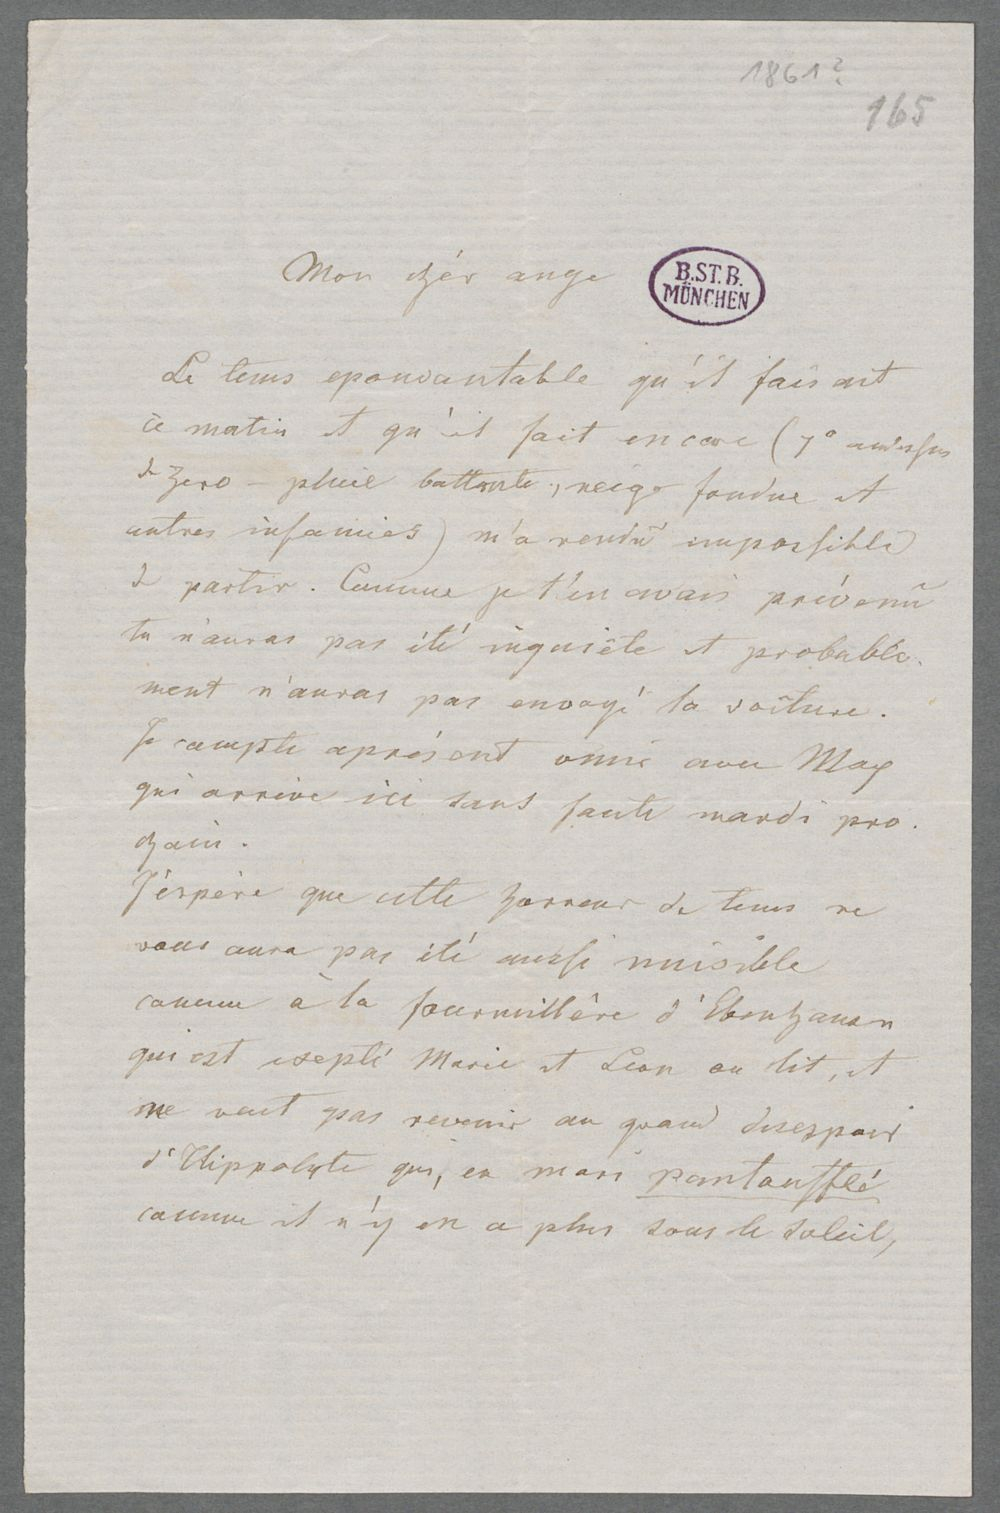 1861?
165
Mon chér ange
B.ST.B.
MÜNCHEN
Le tems epouvantable qu'il faisait
ce matin et qu'il fait encore (7° audessus
de zero – pluie battante, neige fondue et
autres infamies) m'a rendu impossible
de partir. Comme je t'en avais prévenu
tu n'auras pas été inquiéte et probable-
ment n'auras pas envoyé la voiture.
Je compte aprésent venir avec Max
qui arrive ici sans faute mardi pro-
chain.
J'éspère que cette horreur de tems ne
vous aura pas été aussi nuisible
comme à la fourmillère d'Ebenhausen
qui est exepté Marie et Leon au lit, et
ne veut pas revenir au grand desespoir
d'Hippolyte qui, en mari pantoufflé
comme il n'y en a plus sous le soleil,